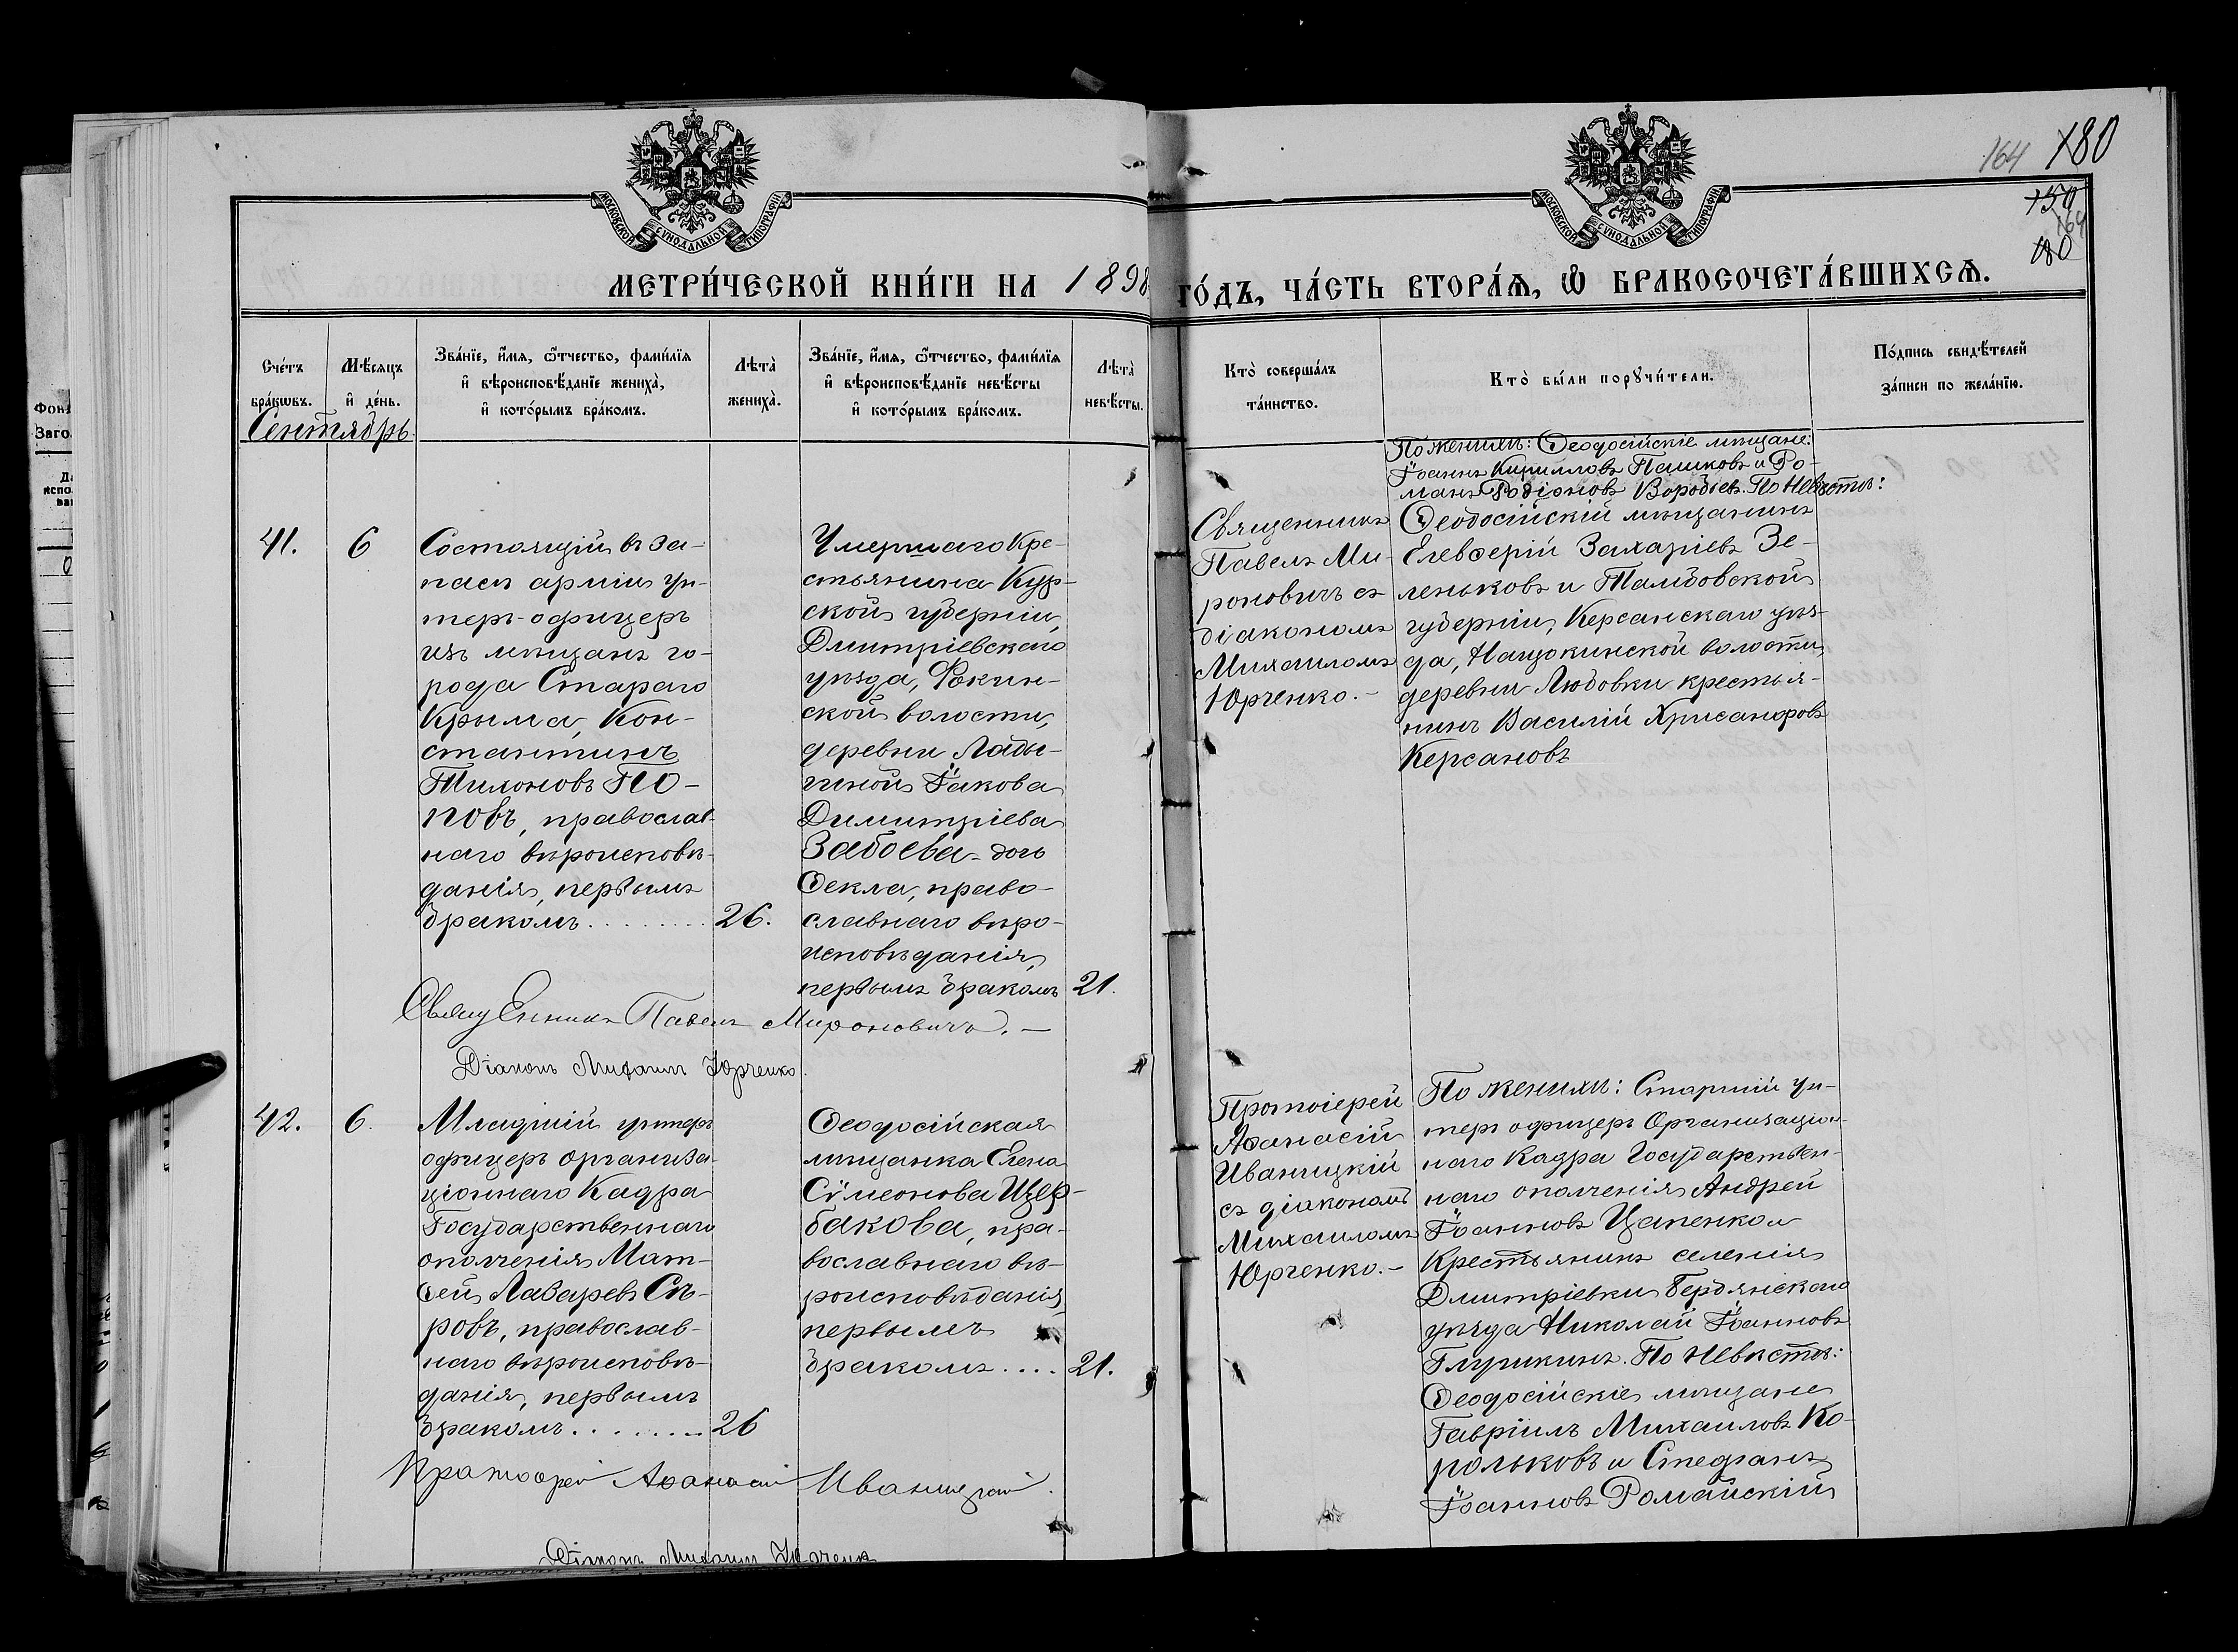 164 180
150
164
180
МОСКОВСКОЙ СѴНОДАЛЬНОЙ ТИПОГРАФІИ
МОСКОВСКОЙ СѴНОДАЛЬНОЙ ТИПОГРАФІИ
МЕТРИ́ЧЕСКОЙ КНИ́ГИ НА 1898 ГО́ДЪ, ЧА́СТЬ ВТОРА́Ѧ, Ѡ҆ БРАКОСОЧЕТА́ВШИХСѦ.
Сче́тъ
бра́кѡвъ.
Мѣ́сѧцъ
и҆ де́нь.
Зва́нїе, и҆́мѧ, ѻ҆́тчество, фами́лїѧ
и҆ вѣроисповѣ́данїе жениха̀,
и҆ кото́рымъ бра́комъ.
Лѣта̀
жениха̀.
Зва́нїе, и҆́мѧ, ѻ҆́тчество, фами́лїѧ
и҆ вѣроисповѣ́данїе невѣ́сты
и҆ кото́рымъ бра́комъ.
Лѣта̀
невѣ́сты.
Кто̀ соверша́лъ
та́инство.
Кто̀ бы́ли порꙋчи́тели.
По́дпись свидѣ́телей
за́писи по жела́нїю.
Сентябрь
41.
6
Состоящій въ за-
пасѣ арміи ун-
теръ-офицеръ
изъ мѣщанъ го-
рода Стараго
Крыма, Кон-
стантинъ
Тихоновъ ПО-
ПОВЪ, православ-
наго вѣроисповѣ-
данія, первымъ
бракомъ........
26.
Умершаго Кре-
стьянина Кур-
ской губерніи,
Дмитріевскаго
уѣзда, Фокин-
ской волости,
деревни Лады-
гиной Іакова
Димитріева
Забоева - дочь
Ѳекла, право-
славнаго вѣро-
исповѣданія,
первымъ бракомъ
21.
Священникъ
Павелъ Ми-
роновичъ съ
діакономъ
Михаиломъ
Юрченко.-
По женихѣ: Ѳеодосійскіе мѣщане:
Іоаннъ Кирилловъ Пашковъ и Ро-
манъ Родіоновъ Воробьевъ. По Невѣстѣ:
Ѳеодосійскій мѣщанинъ
Елевѳерій Захаріевъ Зе-
леньковъ и Тамбовской
губерніи, Керсанскаго уѣз-
да, Нащокинской волости,
деревни Людовки крестья-
нинъ Василій Хрисанфовъ
Керсановъ
Священникъ Павелъ Мироновичъ.-
Діаконъ Михаилъ Юрченко.
42.
6.
Младшій унтеръ
офицеръ организа-
ціоннаго Кадра
Государственнаго
ополченія Мат-
ѳей Лазаревъ Сѣ-
ровъ, православ-
наго вѣроисповѣ-
данія, первымъ
бракомъ........
26
Ѳеодосійская
мѣщанка Елена
Сѵмеонова Щер-
бакова, пра-
вославнаго вѣ-
роисповѣданія,
первымъ
бракомъ....
21.
Протоіерей
Аѳанасій
Иваницкій
съ діакономъ
Михаиломъ
Юрченко.-
По женихѣ: Старшій ун-
теръ офицеръ Организаціон-
наго Кадра Государствен-
наго ополченія Андрей
Іоанновъ Цапенко и
Крестьянинъ селенія
Дмитріевки Бердянскаго
уѣзда Николай Іоанновъ
Глушкинъ. По Невѣстѣ:
Ѳеодосійскіе мѣщане
Гавріилъ Михаиловъ Ко-
рольковъ и Стефанъ
Іоанновъ Романскій
Протоіерей Аѳанасій Иваницкій.
Діаконъ Михаилъ Юрченк